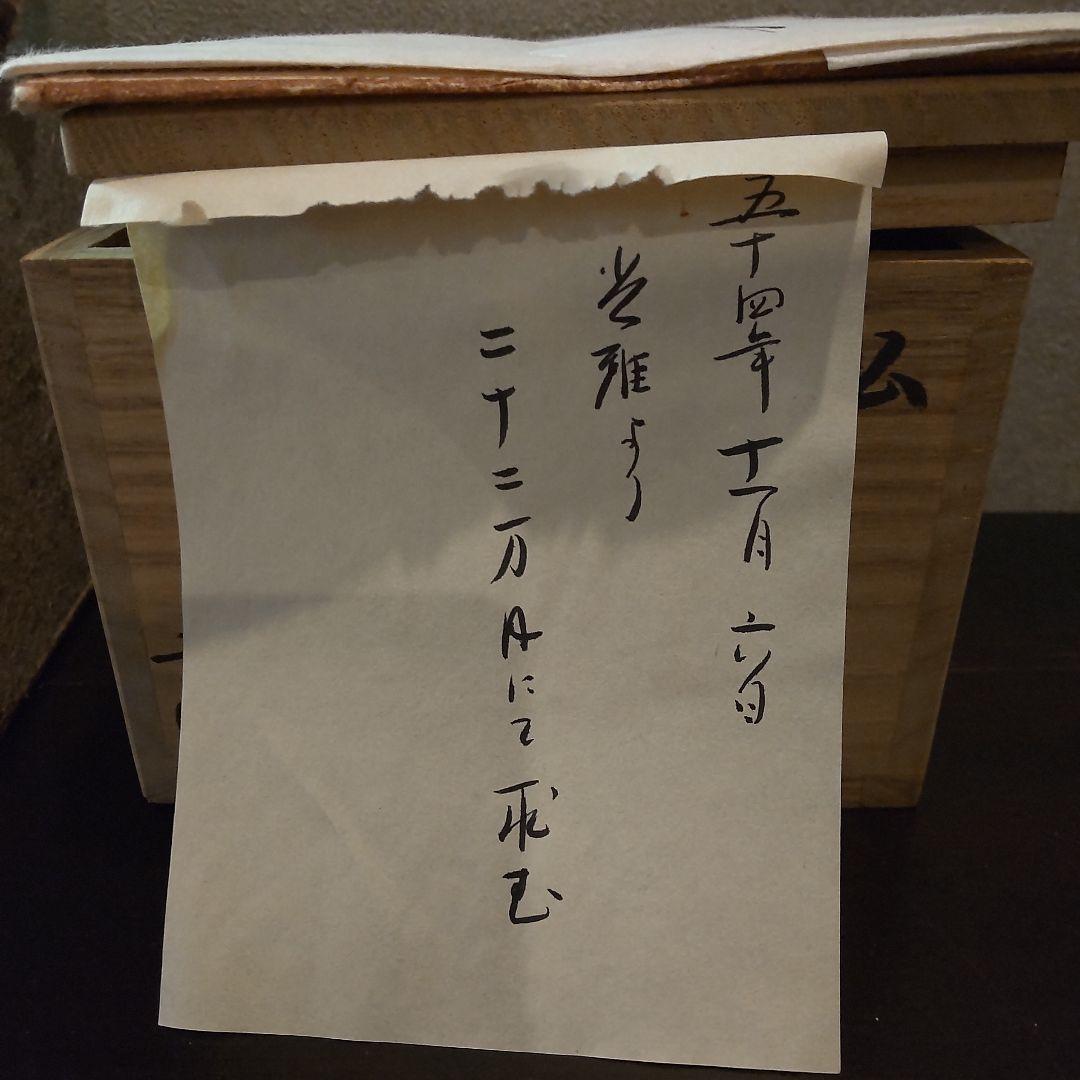 五十四年 十一月 六日
光雅より
二十二万円にて 求む